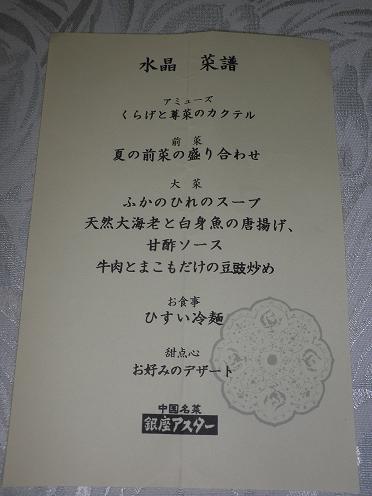 水晶　菜譜
アミューズ
くらげと蓴菜のカクテル
前菜
夏の前菜の盛り合わせ
大菜
ふかのひれのスープ
天然大海老と白身魚の唐揚げ、
甘酢ソース
牛肉とまこもだけの豆豉炒め
お食事
ひすい冷麺
甜点心
お好みのデザート
中国名菜
銀座アスター